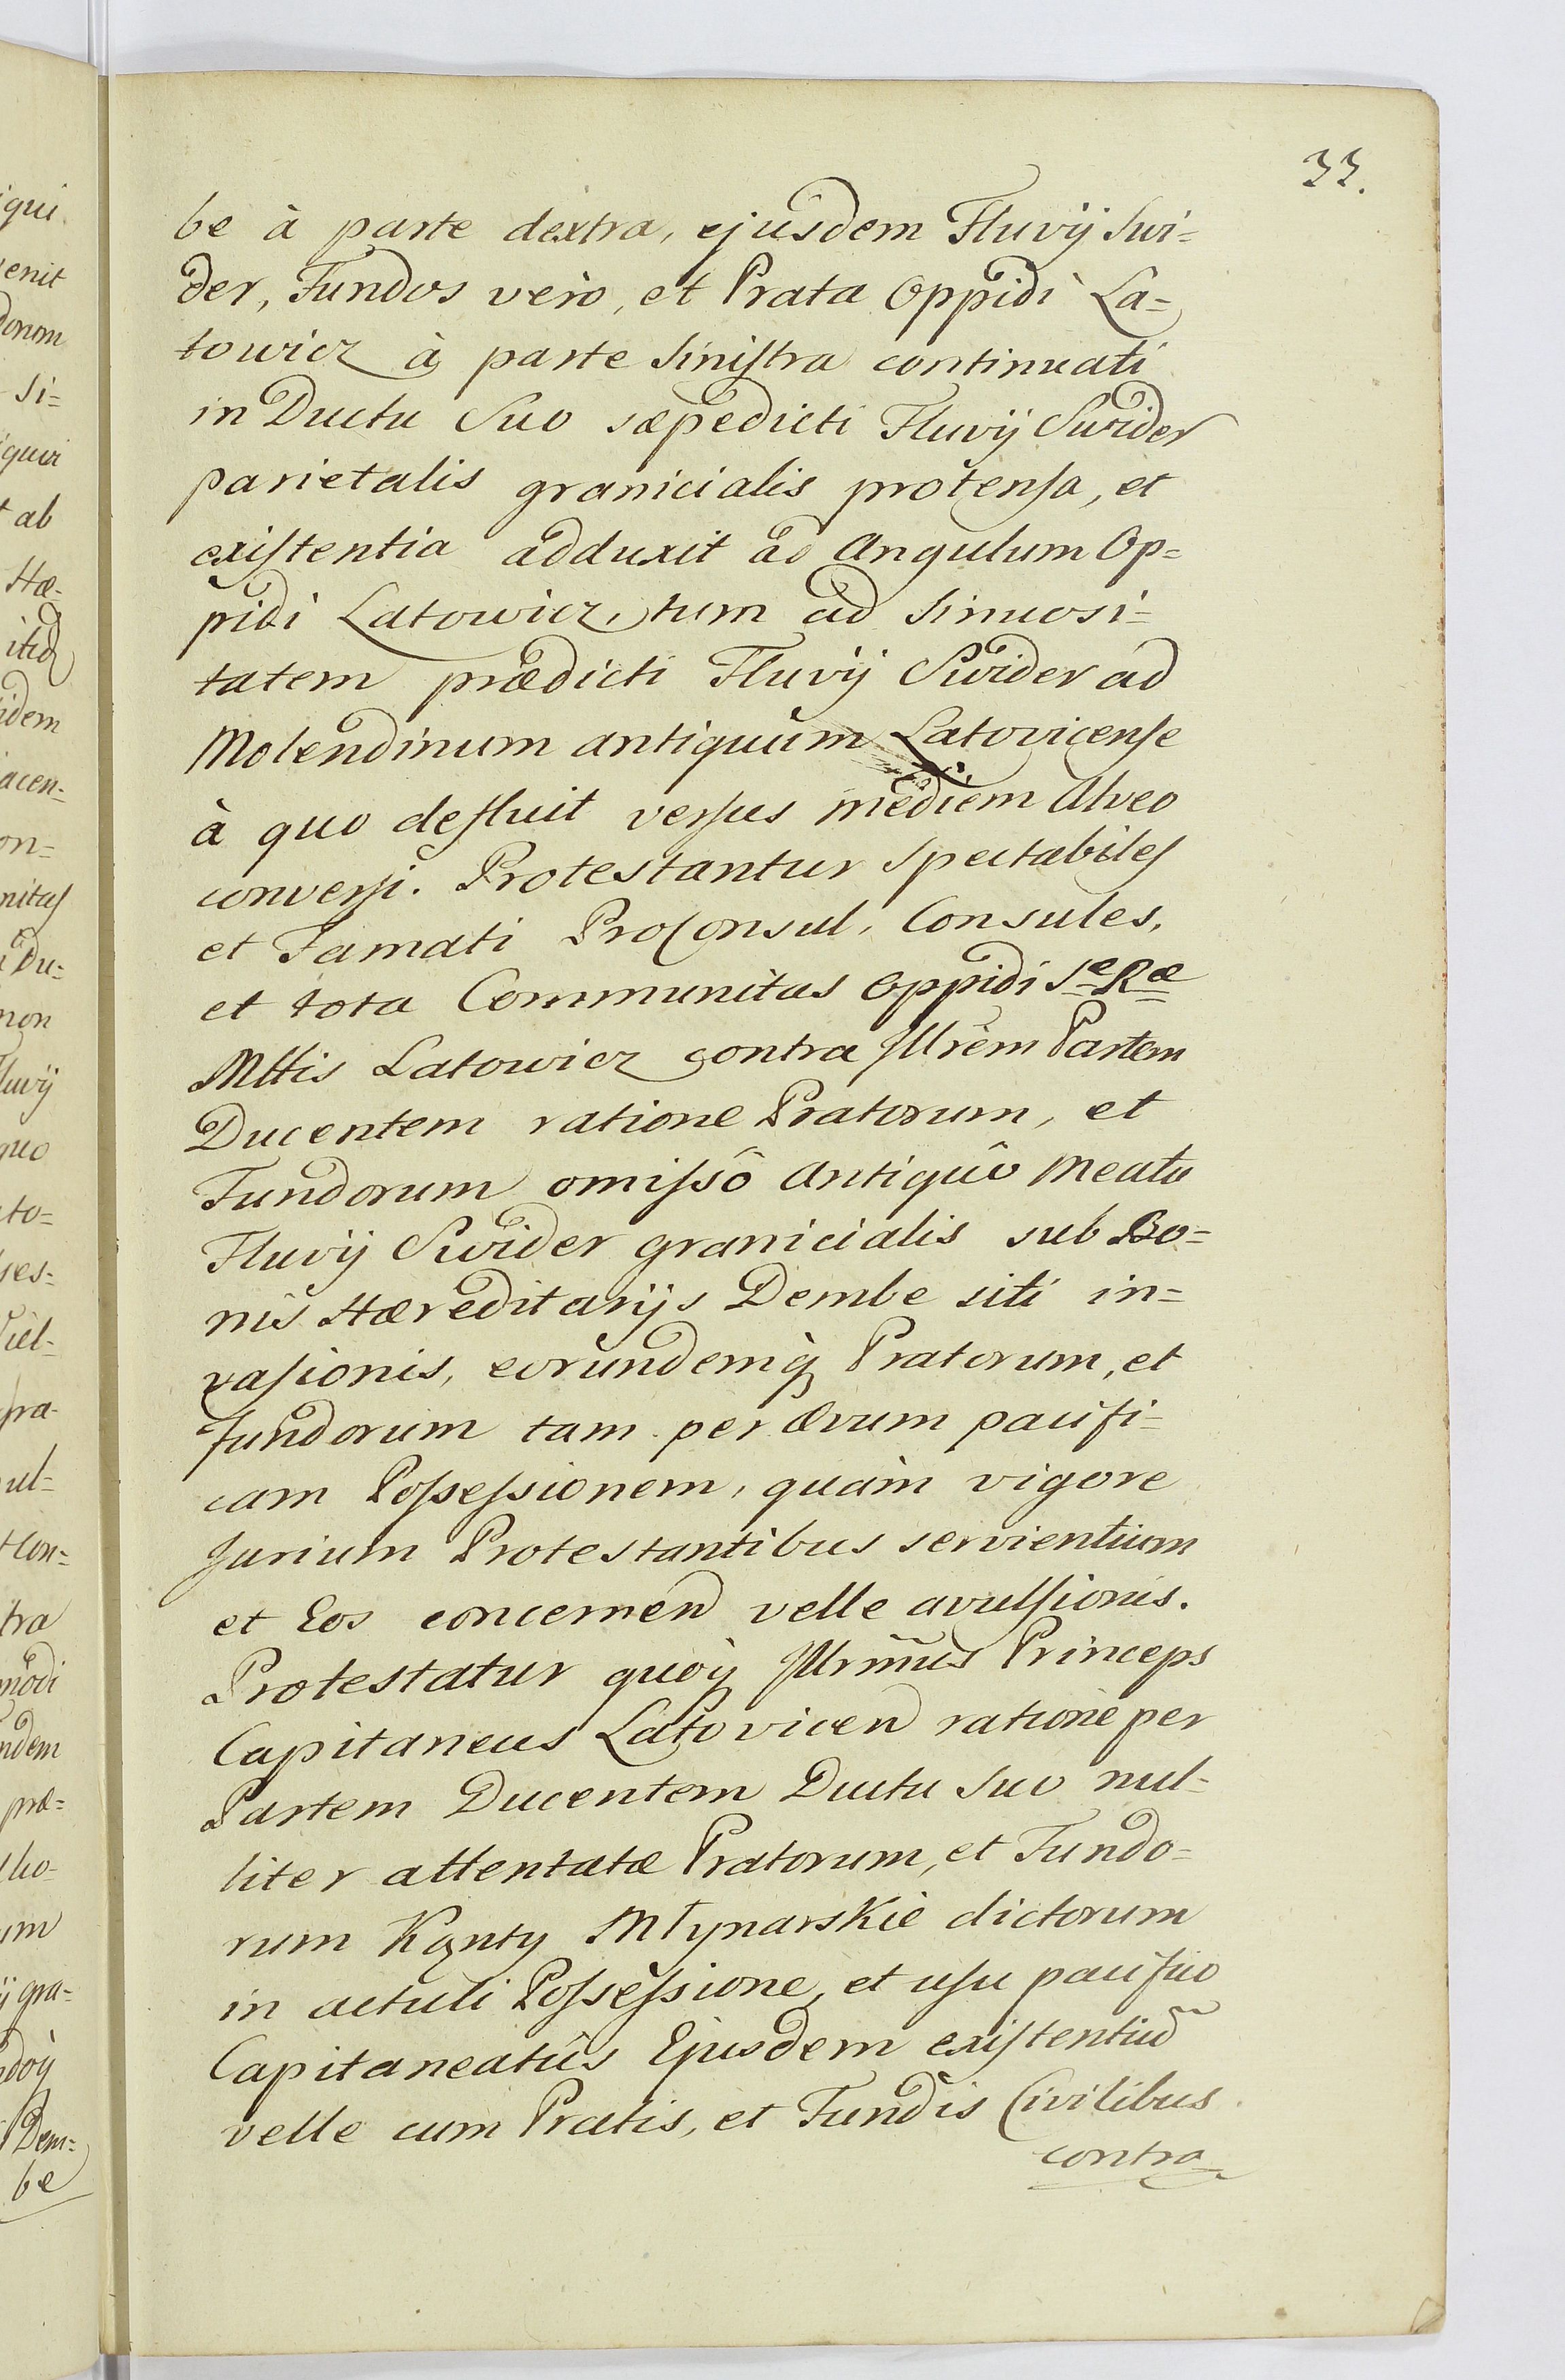 33.
be à parte dextra, ejusdem Fluvij Swi=
der, Fundos verò, et Prata Oppidi La=
towicz à parte sinistra continuati
in Ductu Suo sæpedicti Fluvij Swider
parietalis granicialis protensa, et
existentia adduxit ad Angulum Op=
pidi Latowicz, tum ad sinuosi=
tatem prædicti Fluvij Swider ad
Molendinum antiquum Latovicense
à quo defluit versus mediem Alveo
conversi. Protestantur Spectabiles
et Famati ProConsul, Consules,
et tota Communitas Oppidi Sᵉ Rᵆ
Mttis Latowicz contra Illrem Partem
Ducentem ratione Pratorum, et
Fundorum omissô Antiquô Meatu
Fluvij Swider granicialis sub Bo=
nis Hæreditarijs Dembe siti in=
vasionis, eorundemq3 Pratorum, et
fundorum tam per ævum pacifi=
cam Possessionem, quàm vigore
Jurium Protestantibus servientium
et Eos concernen velle avulsionis.
Protestatur quoq3 Illrm̃us Princeps
Capitaneus Latovicen ratione per
Partem Ducentem Ductu Suo nul=
liter attentatæ Pratorum, et Fundo=
rum Kąnty Młynarskie dictorum
in actuli Possessione, et usu pacifico
Capitaneatûs Ejusdem existentiũ
velle cum Pratis, et Fundis Civilibus
contra
iqui
venit
donom
Si=
t ab
Hæ=
idem
acen=
on=
nitas
Du=
non
Fluvij
quo
to=
ses=
iel=
pra=
ul=
t Con=
tra
modi
ndem
præ=
um
ij gra=
Dem=
be